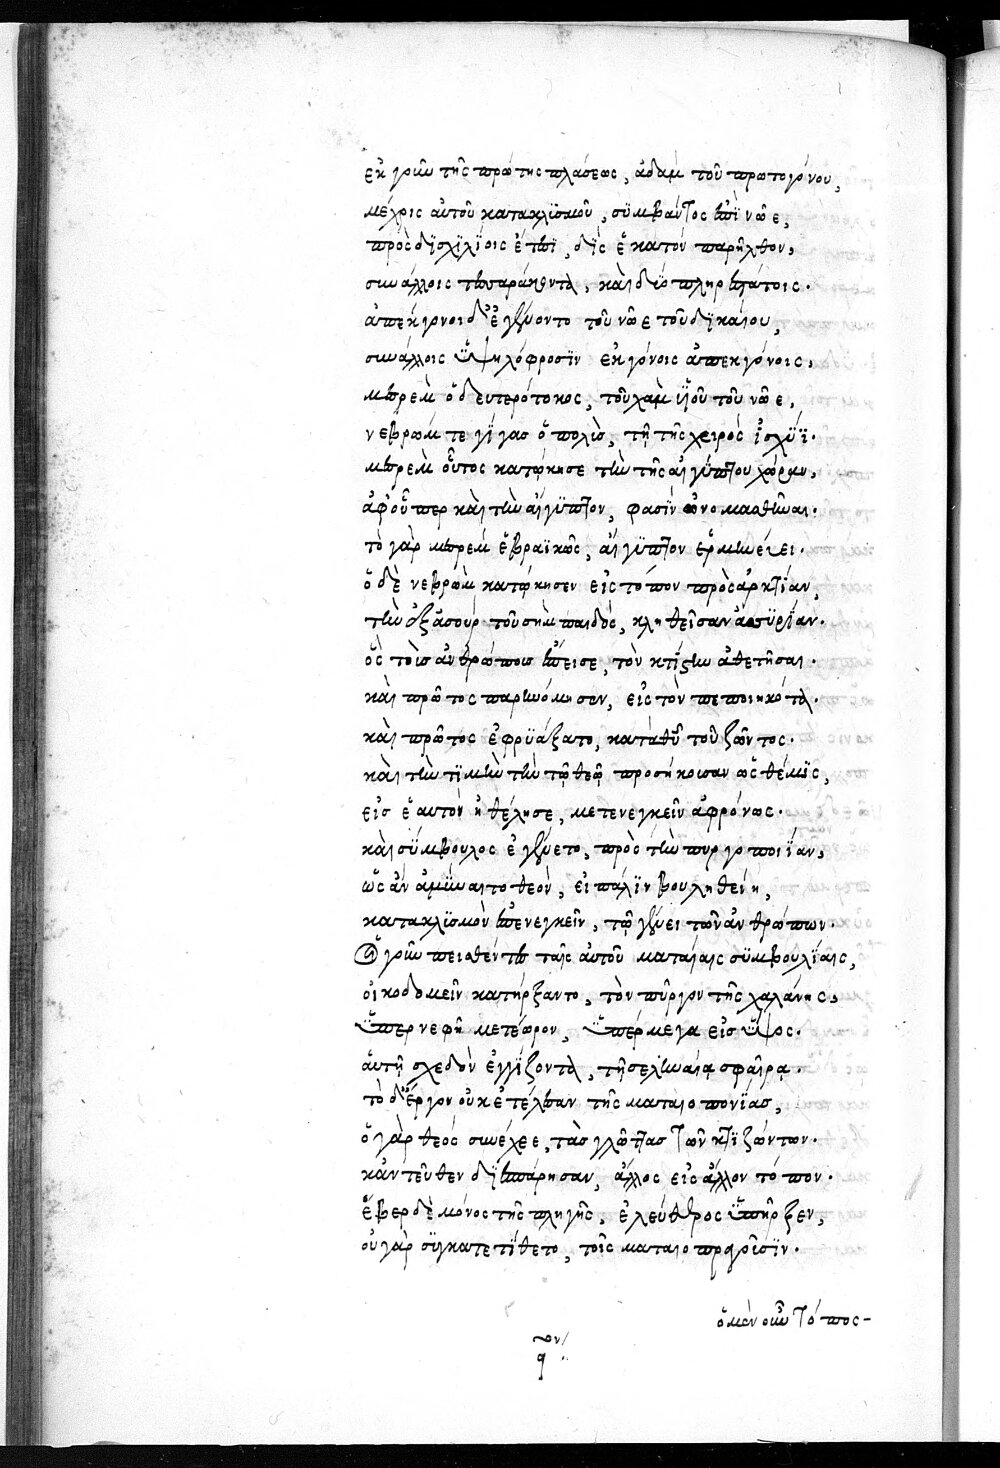 ἐκ γοῦν τῆς πρώτης πλάσεως, ἀδὰμ τοῦ πρωτογόνου,
μέχρις αὐτοῦ κατακλϊσμοῦ, σϋμβάντος ἐπὶ νῶε,
πρὸς δϊσχϊλΐοις ἔτεσϊ, δὶς ἑκατὸν παρῆλθον,
σὺν ἄλλοις τεσσαράκοντα, καὶ δύο πληρεστάτοις.
ἀπέκγονοι δ' ἐγένοντο τοῦ νῶε τοῦ δϊκαίου,
σὺν ἄλλοις ὑψηλόφροσϊν ἐκγόνοις ἀπεκγόνοις,
μεσρὲμ ὁ δευτερότοκος, τοῦ χὰμ υἱοῦ τοῦ νῶε,
νεβρώμ τε γΐγας ὁ πολὺς, τῇ τῆς χειρὸς ἰσχύϊ.
μεσρὲμ οὗτος κατῴκησε τὴν τῆς αἰγύπτου χώραν,
ἀφ' οὗπερ καὶ τὴν αἴγϋπτον, φασὶν ὠνομασθῆναι.
τὸ γὰρ μεσρέμ ἑβραϊκῶς, αἴγϋπτον ἑρμηνεύει.
ὁ δὲ νεβρὼμ κατῴκησεν εἰς τόπον πρὸς ἀρκτΐαν,
τὴν ἐξ ἀσοὺρ τοῦ σὴμ παιδὸς, κληθεῖσαν ἀσσϋρΐαν.
ὃς τοῖς ἀνθρώποις ἔπεισε, τὸν κτΐστην ἀθετῆσαι.
καὶ πρῶτος παρηνόμησεν, εἰς τὸν πεποιηκότα.
καὶ πρῶτος ἐφρϋάξατο, κατὰ θεοῦ τοῦ ζῶντος.
καὶ τὴν τϊμὴν τὴν τῷ θεῷ προσήκουσαν ὡς θέμϊς,
εἰς ἑαυτὸν ἠθέλησε, μετενεγκεῖν ἀφρόνως.
καὶ σύμβουλος ἐγένετο, πρὸς τὴν πυργοποιΐαν,
ὡς ἂν ἀμύναιτο θεὸν, εἰ πάλϊν βουληθείη,
κατακλϊσμὸν ἐπενεγκεῖν, τῷ γένει τῶν ἀνθρώπων.
οἱ γοῦν πεισθέντες ταῖς αὐτοῦ ματαίαις σϋμβουλΐαις,
οἰκοδομεῖν κατήρξαντο, τὸν πύργον τῆς χαλάνης,
ὑπερνεφῆ μετέωρον, ὑπέρμεγα εἰς ὕψος.
αὐτῇ σχεδὸν ἐγγΐζοντα, τῇ σεληναίᾳ σφαίρᾳ.
τὸ δ' ἔργον οὐκ ἐτέλεσαν τῆς ματαιοπονΐας,
ὁ γὰρ θεὸς συνέχεε, τὰς γλώττας τῶν κτϊζόντων.
κἀντεῦθεν δϊεσπάρησαν, ἄλλος εἰς ἄλλον τόπον.
ἕβερ δὲ μόνος τῆς πληγῆς, ἐλεύθερος ὑπῆρξεν,
οὐ γὰρ σϋγκατετΐθετο, τοῖς ματαιοπραγοῦσϊν.
ὁ μὲν οὖν τόπος-